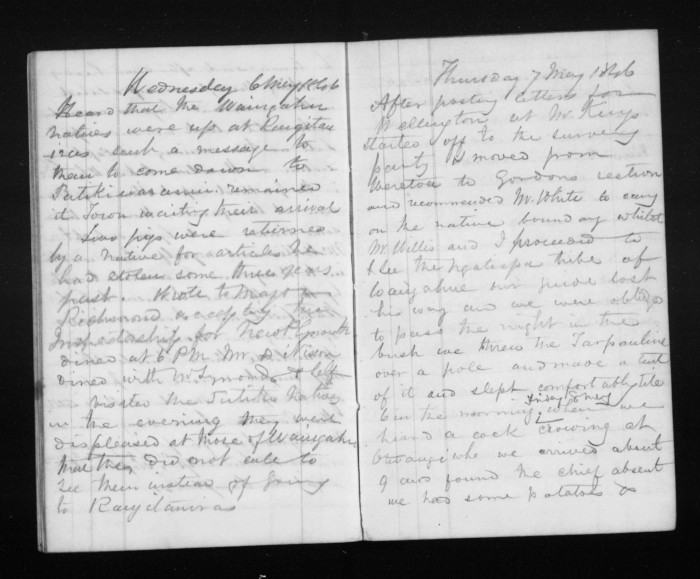 Wednesday 6 May 1846
Heard that the Waingahu
natives were up at Rangitau
iras sent a message to
them to come down to
Putiki remained
at Town waiting their arrival
Two pigs were returned
by a native for articles he
had stolen some three years
past. Wrote to Major
Richmond accepting the
Inspectorship for New Plymouth
dined at 6 PM Mr D Nixon
dined with Symonds &
visited the Putiki natives
in the evening they were
displeased at those of Waingahu
that they did not call to
see them instead of going
to Rangitauiras
Thursday 7 May 1846
After posting letters for
Wellington at Mr Kings
started off to the survey
party & moved from
to Gordons section
and recommended Mr White to carry
on the native boundary whilst
Mr Wills and I proceeded to
see the Ngatiapa tribe of
our guide lost
his way and we were obliged
to pass the night in the
bush we threw the Tarpauline
over a pole and made a tent
of it and slept comfortably till
6 in the morning when we
Friday 8 May
heard a cock crowing at
we arrived about
9 and found the chief absent
we had some potatoes &